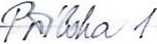 Příloha 1